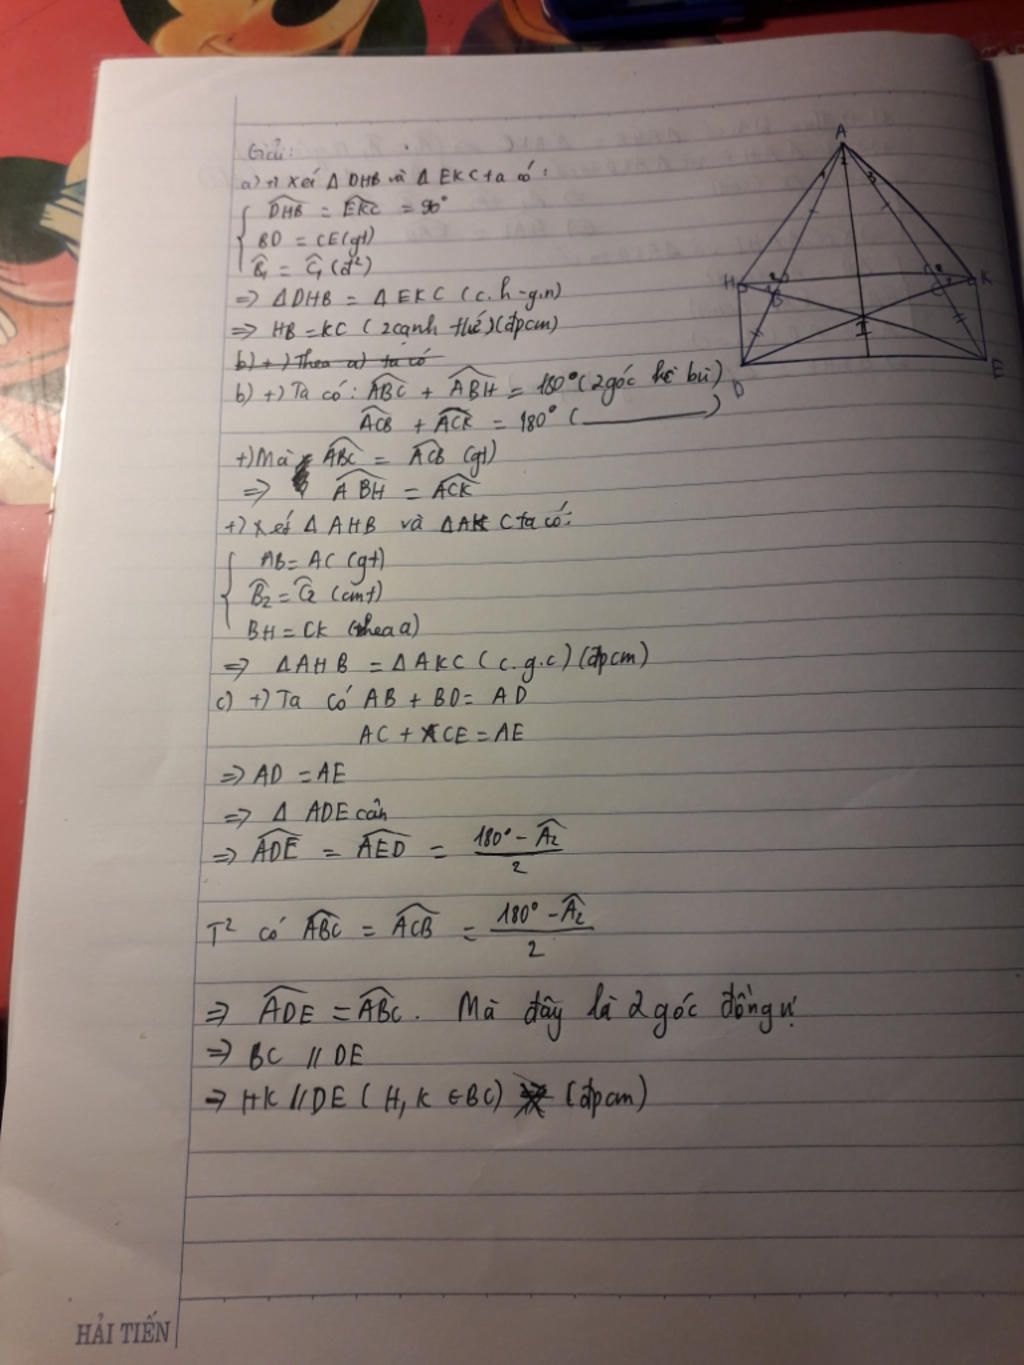 Giải:
a) +) Xét Δ DHB và Δ EKC ta có:
DHB = EKC = 90°
BD = CE (gt)
B̂₁ = Ĉ₁ (đ²)
=> ΔDHB = ΔEKC (c.h-g.n)
=> HB = KC (2 cạnh t/ứ) (đpcm)
b) +) Theo a) ta có
b) +) Ta có: ABC + ABH = 180° (2 góc kề bù)
ACB + ACK = 180° (———)
+) Mà ABC = ACB (gt)
=> ABH = ACK
+) Xét Δ AHB và ΔAKC ta có:
AB = AC (gt)
B̂₂ = Ĉ₂ (cmt)
BH = CK (theo a)
=> ΔAHB = ΔAKC (c.g.c) (đpcm)
c) +) Ta có AB + BD = AD
AC + CE = AE
=> AD = AE
=> Δ ADE cân
=> ADE = AED = (180° - Â₂)/2
T² có ABC = ACB = (180° - Â₂)/2
=> ADE = ABC. Mà đây là 2 góc đồng vị
=> BC // DE
=> HK // DE (H, K ∈ BC) (đpcm)
A
1 2 3
H
K
B
C
I
D
E
HẢI TIẾN